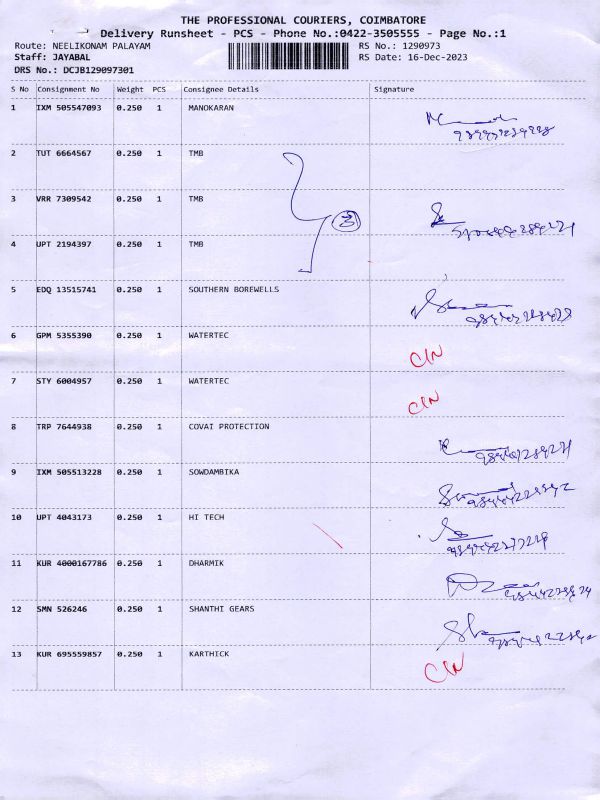 THE PROFESSIONAL COURIERS, COIMBATORE
Delivery Runsheet - PCS - Phone No.:0422-3505555 - Page No.:1
Route: NEELIKONAM PALAYAM RS No.: 1290973
Staff: JAYABAL RS Date: 16-Dec-2023
DRS No.: DCJB129097301
S No Consignment No Weight PCS Consignee Details Signature
1 IXM 505547093 0.250 1 MANOKARAN
2 TUT 6664567 0.250 1 TMB
3 VRR 7309542 0.250 1 TMB
3
4 UPT 2194397 0.250 1 TMB
5 EDQ 13515741 0.250 1 SOUTHERN BOREWELLS
6 GPM 5355390 0.250 1 WATERTEC CIN
7 STY 6004957 0.250 1 WATERTEC CIN
8 TRP 7644938 0.250 1 COVAI PROTECTION
9 IXM 505513228 0.250 1 SOWDAMBIKA
10 UPT 4043173 0.250 1 HI TECH
11 KUR 4000167786 0.250 1 DHARMIK
12 SMN 526246 0.250 1 SHANTHI GEARS
13 KUR 695559857 0.250 1 KARTHICK CIN